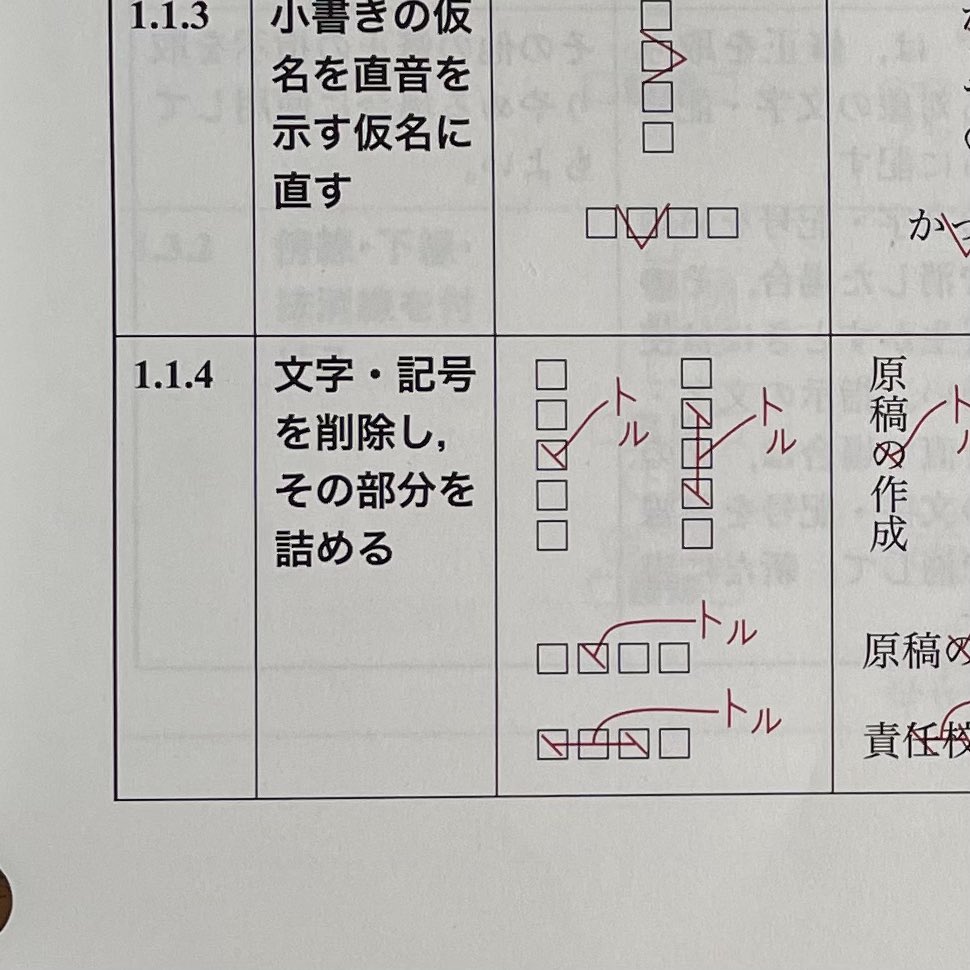 1.1.3
小書きの仮
名を直音を
示す仮名に
直す
かっ
1.1.4
文字・記号
を削除し,
その部分を
詰める
トル
トル
原稿の作成
トル
原稿の
トル
責任校